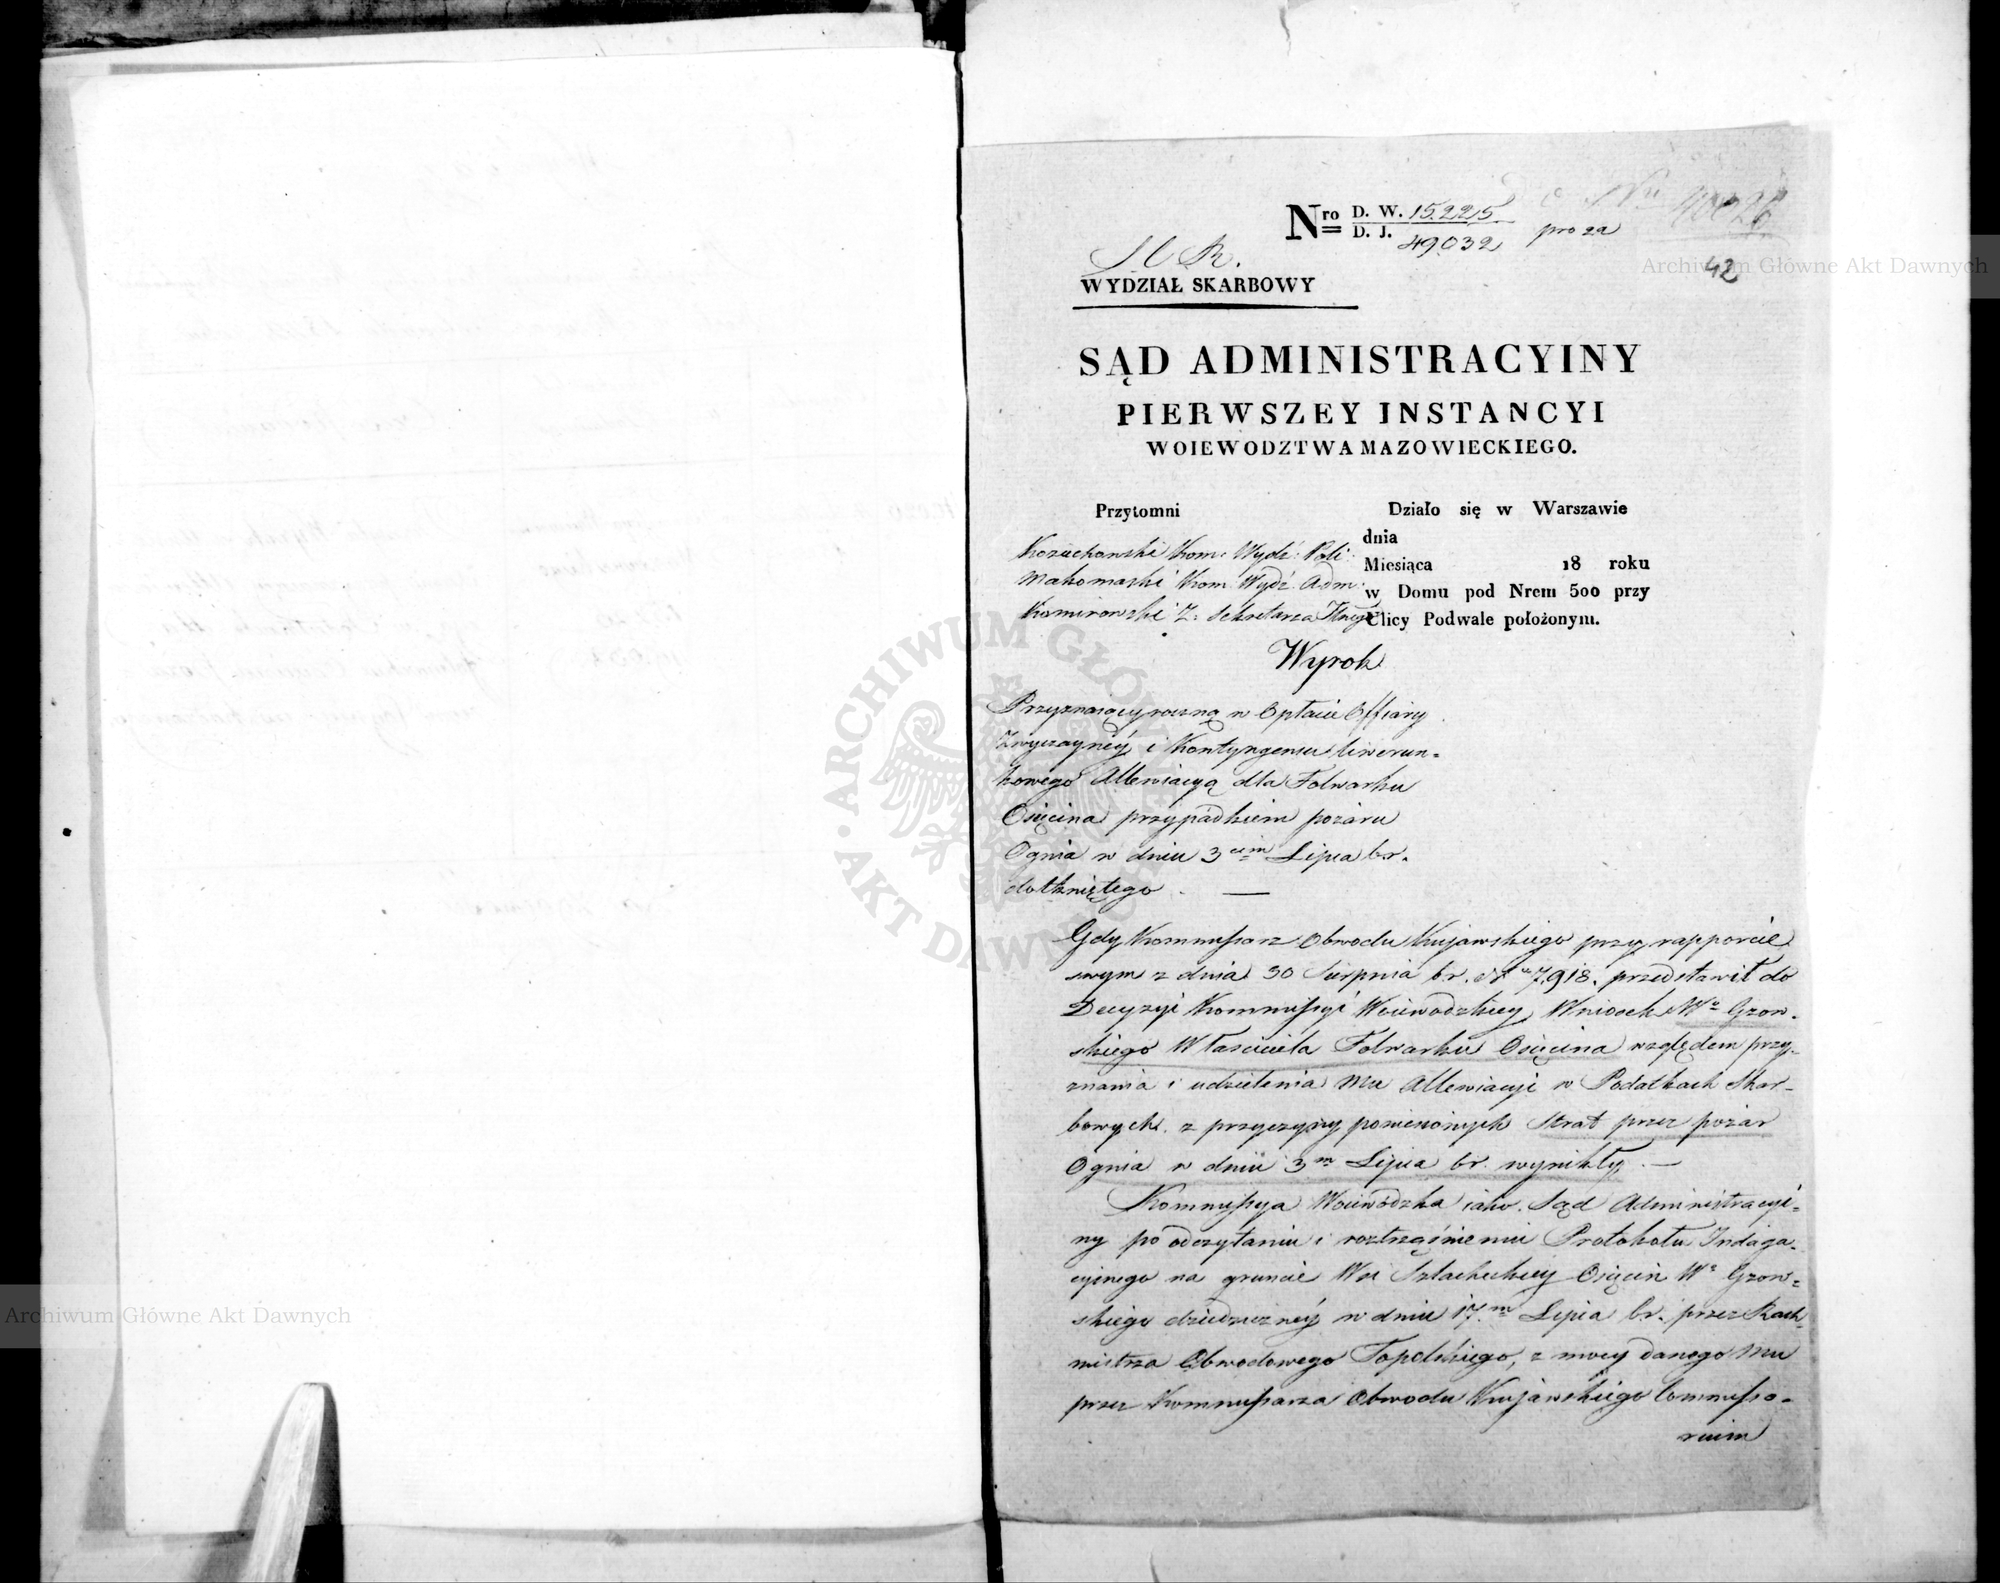 Nro D. W. 15225
D. J. 49032
pro za
42
WYDZIAŁ SKARBOWY
SĄD ADMINISTRACYINY
PIERWSZEY INSTANCYI
WOIEWODZTWA MAZOWIECKIEGO.
Przytomni
Kożuchowski Kom: Wydź: Poli:
Makomaski Kom: Wydź Adm:
Komirowski Z: Sekretarza
Działo się w Warszawie
dnia
Miesiąca 18 roku
w Domu pod Nrem 500 przy
Ulicy Podwale położonym.
Wyrok
Przyznaiący roczną w Opłacie Offiary
Zwyczayney i Kontyngensu liwerun-
kowego Allewiacyą dla Folwarku
Osięcina przypadkiem pożaru
Ognia w dniu 3cim Lipca br.
dotkniętego. —
Gdy Kommissarz Obwodu Kujawskiego przy rapporcie
swym z dnia 30 Sierpnia br. No 7,918. przedstawił do
Decyzyi Kommissyi Woiewodzkiey Wniosek Wo Gzow-
skiego Właściciela Folwarku Osięcina względem przy-
znania i udzielenia Mu Allewiacyi w Podatkach Skar-
bowych. z przyczyny poniesionych Strat przez pożar
Ognia w dniu 3m Lipca br. wynikły. —
Kommissya Woiewódzka iako Sąd Administracyi-
ny po odczytaniu i roztrząśnieniu Protokołu Indaga-
cyinego na gruncie Wsi Szlacheckiey Osięcin Wo Gzow-
skiego dziedziczney w dniu 17m Lipca br. przez Rach-
mistrza Obwodowego Topolskiego, z mocy danego Mu
przez Kommissarza Obwodu Kujawskiego Commisso-
rium
Archiwum Główne Akt Dawnych
Archiwum Główne Akt Dawnych
ARCHIWUM GŁÓWNE AKT DAWNYCH